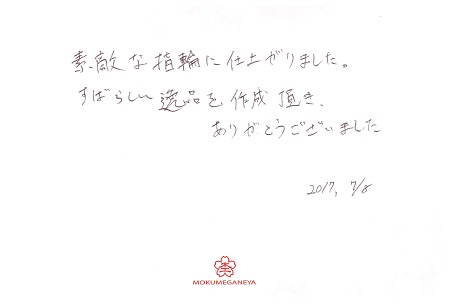 素敵な指輪に仕上がりました。
すばらしい逸品を作成頂き、
ありがとうございました
2017, 7/8
MOKUMEGANEYA